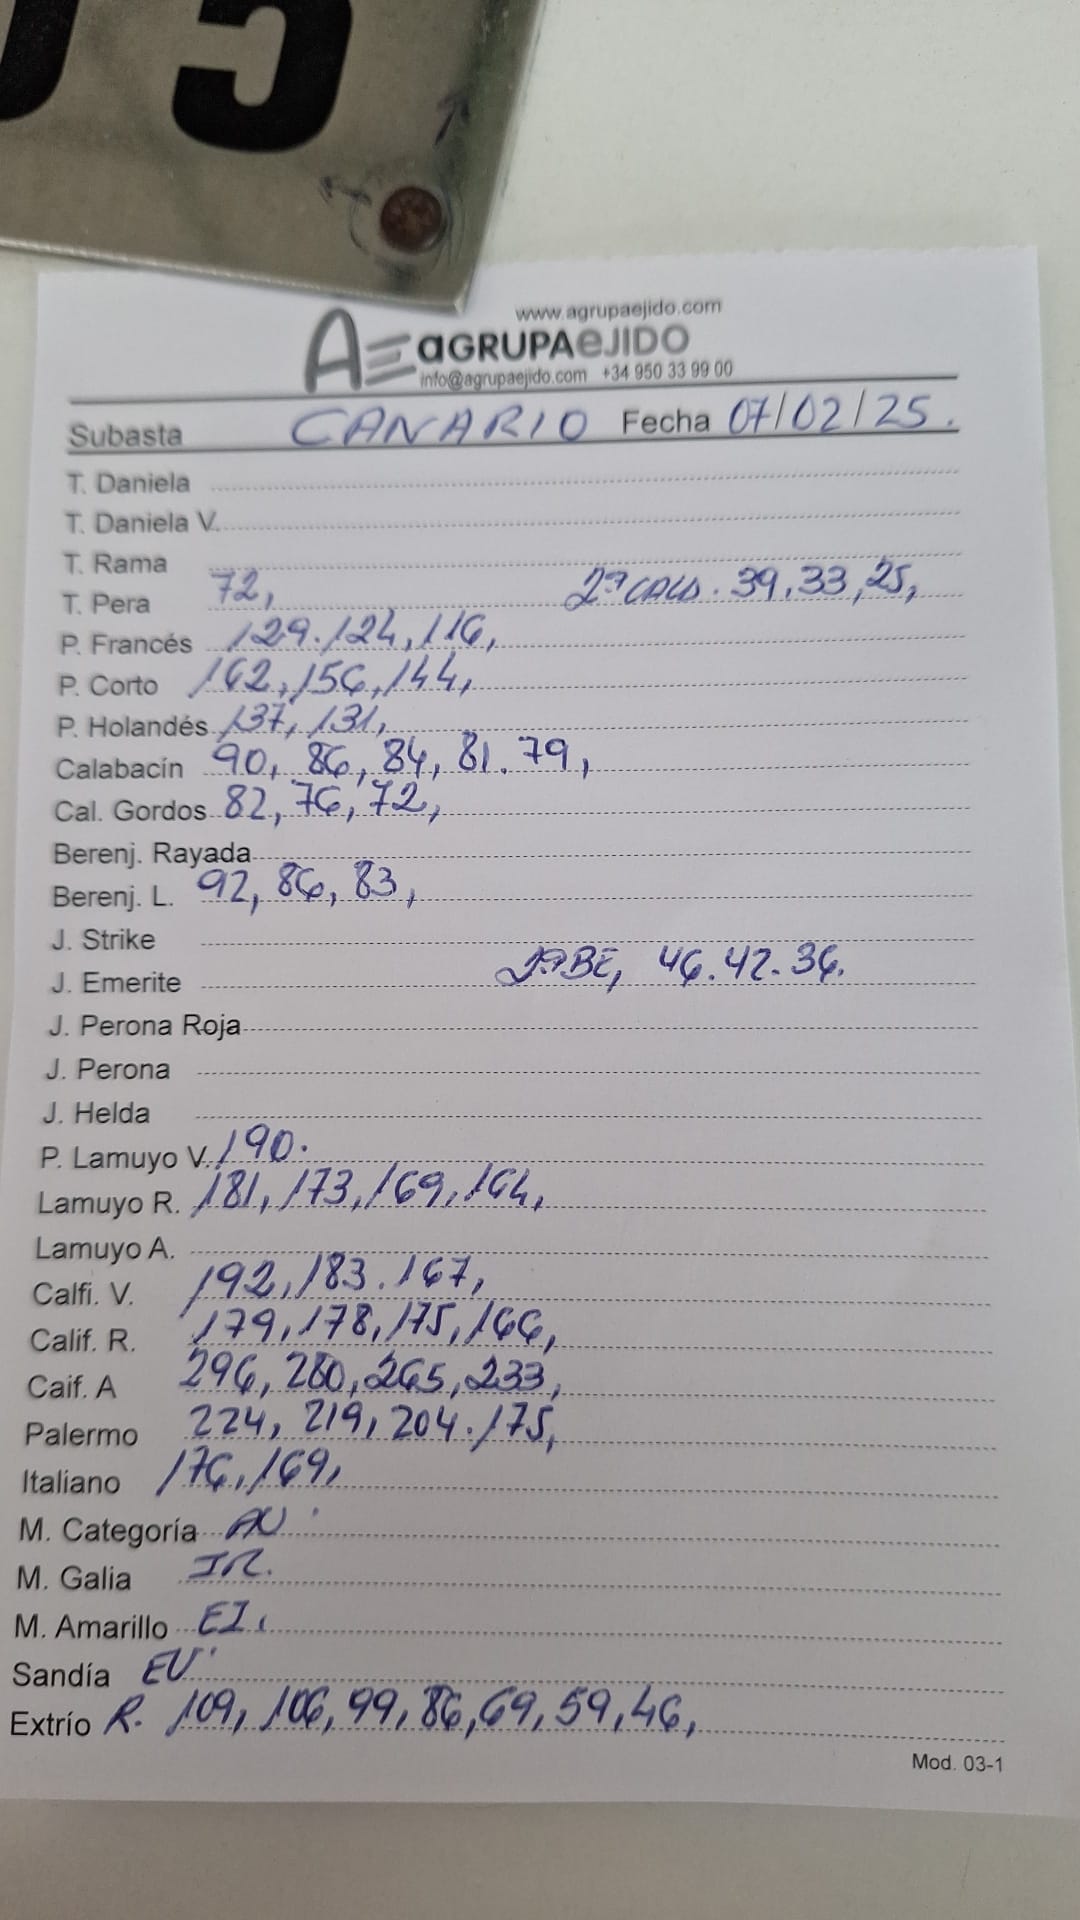 05
www.agrupaejido.com
AE aGRUPAeJIDO
info@agrupaejido.com +34 950 33 99 00
Subasta CANARIO Fecha 07/02/25.
T. Daniela
T. Daniela V.
T. Rama
T. Pera 72, 2ª CALD. 39, 33, 25,
P. Francés 129. 124, 116,
P. Corto 162, 156, 144,
P. Holandés 137, 131,
Calabacín 90, 86, 84, 81. 79,
Cal. Gordos 82, 76, 72,
Berenj. Rayada
Berenj. L. 92, 86, 83,
J. Strike
J. Emerite 46. 42. 36.
J. Perona Roja
J. Perona
J. Helda
P. Lamuyo V. 190.
Lamuyo R. 181, 173, 169, 164,
Lamuyo A.
Calfi. V. 192, 183. 167,
Calif. R. 179, 178, 175, 166,
Caif. A 296, 280, 265, 233,
Palermo 224, 219, 204. 175,
Italiano 176, 169,
M. Categoría AU
M. Galia IR.
M. Amarillo EI,
Sandía EU
Extrío R. 109, 106, 99, 86, 69, 59, 46,
Mod. 03-1